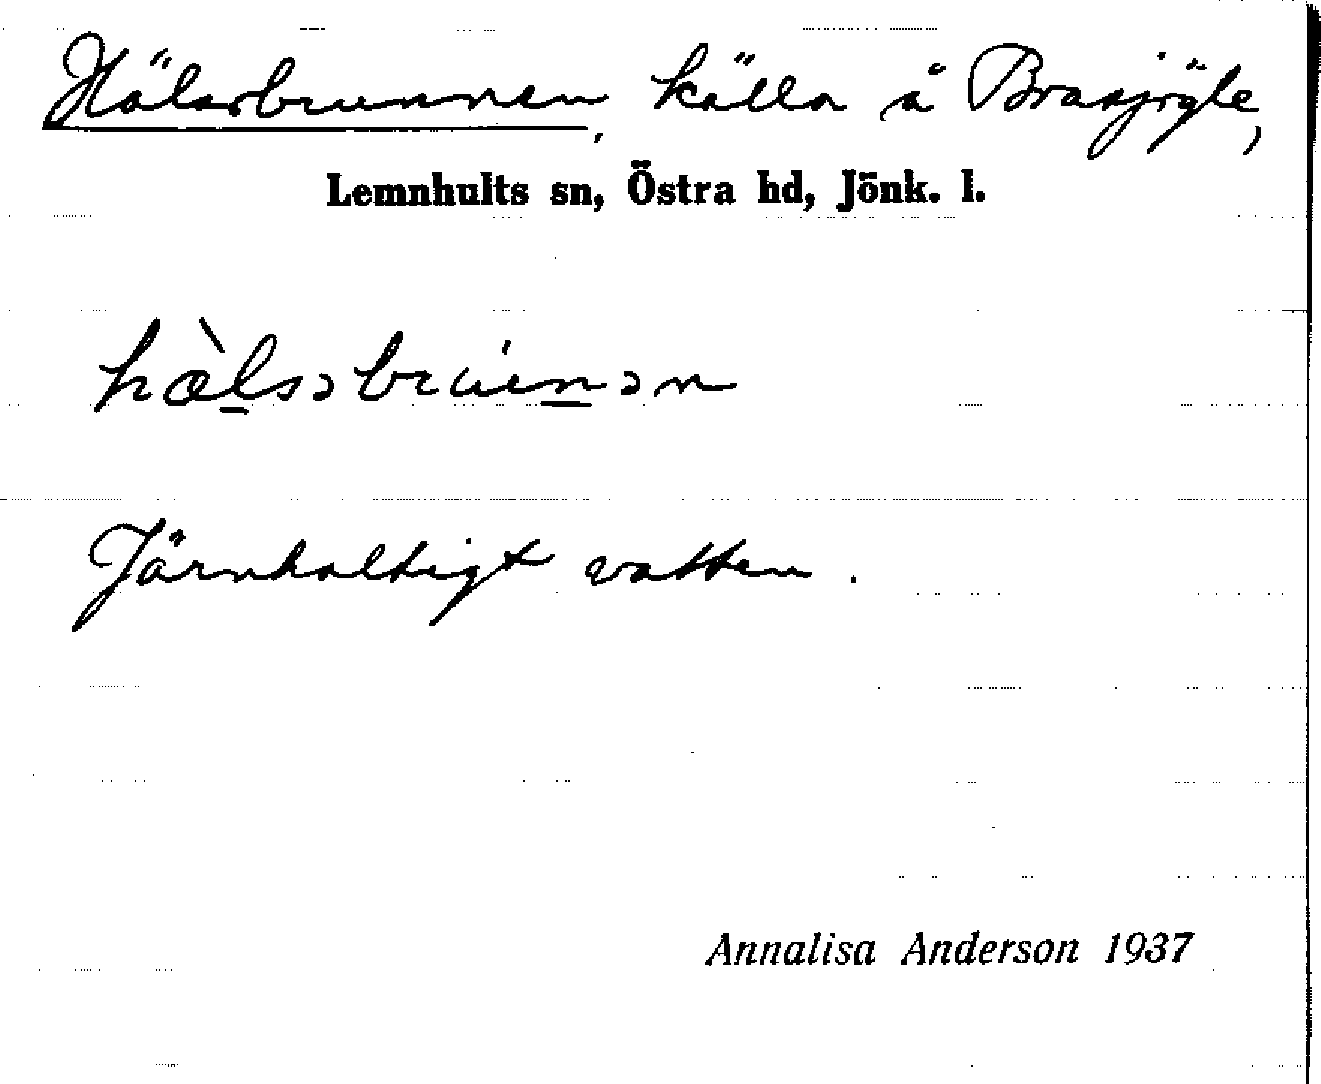 Hälsobrunnen, källa å Brasjöyle,
Lemnhults sn, Östra hd, Jönk. l.
hæ̀lsɔbruńɔn
Järnhaltigt vatten.
Annalisa Anderson 1937